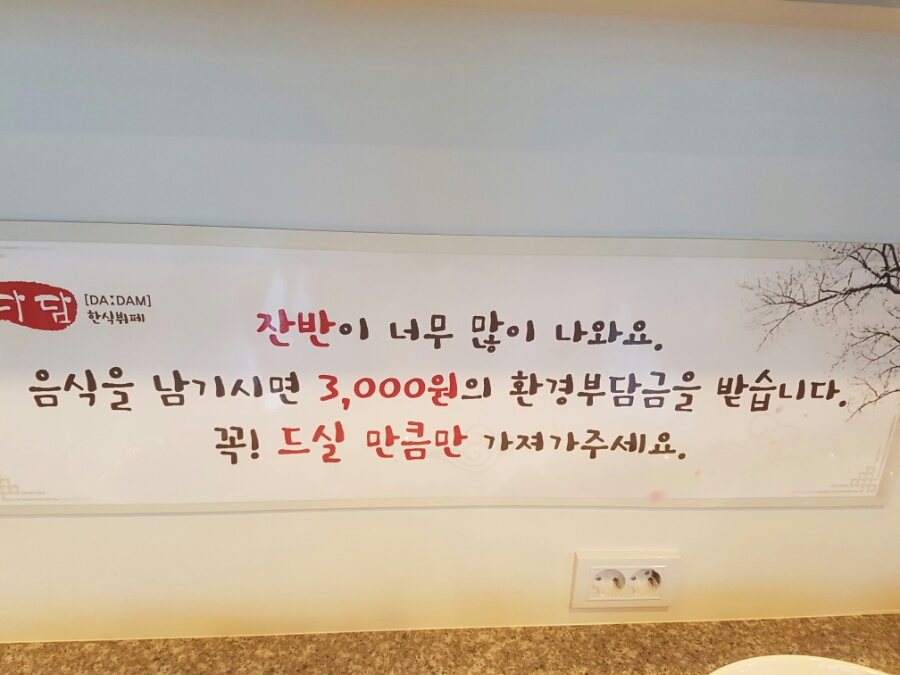 다담
[DA:DAM]
한식뷔페
잔반이 너무 많이 나와요.
음식을 남기시면 3,000원의 환경부담금을 받습니다.
꼭! 드실 만큼만 가져가주세요.